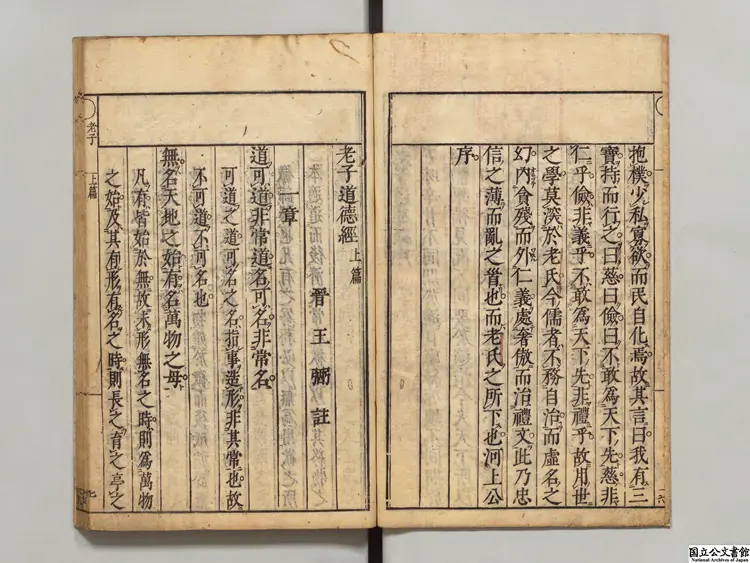 抱樸少私寡欲而民自化焉故其言曰我有三
寶持而行之曰慈曰儉曰不敢為天下先慈非
仁乎儉非義乎不敢為天下先非禮乎故用世
之學莫深於老氏今儒者不務自治而虛名之
幻內貪殘而外仁義處奢傲而治禮文此乃忠
信之薄而亂之首也而老氏之所下也河上公
序
老子道德經上篇
晉王弼註
一章
道可道非常道名可名非常名
可道之道可名之名指事造形非其常也故
不可道不可名也
無名天地之始有名萬物之母
凡有皆始於無故未形無名之時則為萬物
之始及其有形有名之時則長之育之亭之
老子
上篇
国立公文書館
National Archives of Japan